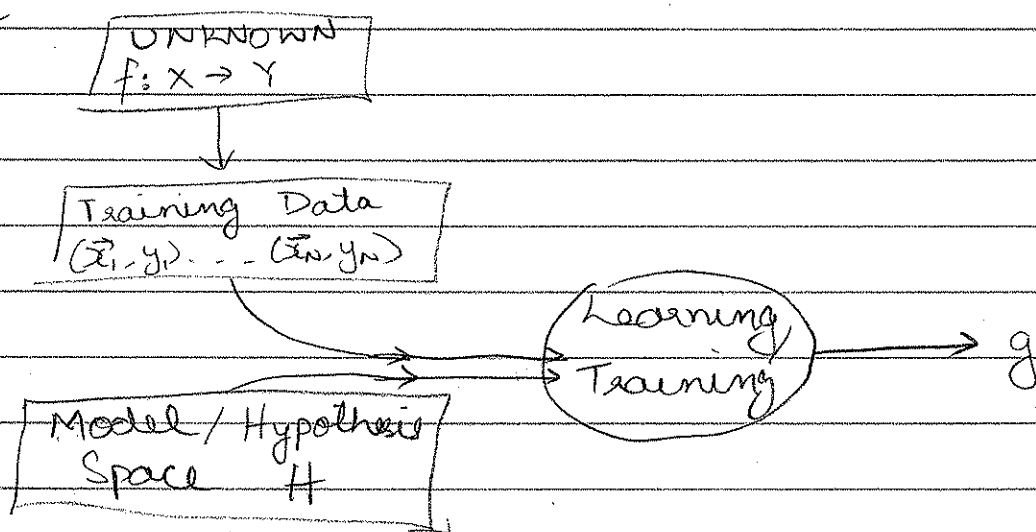 UNKNOWN
f: X → Y
Training Data
(x⃗₁, y₁) . . . (x⃗N, yN)
Learning,
Training
g
Model / Hypothesis
Space H